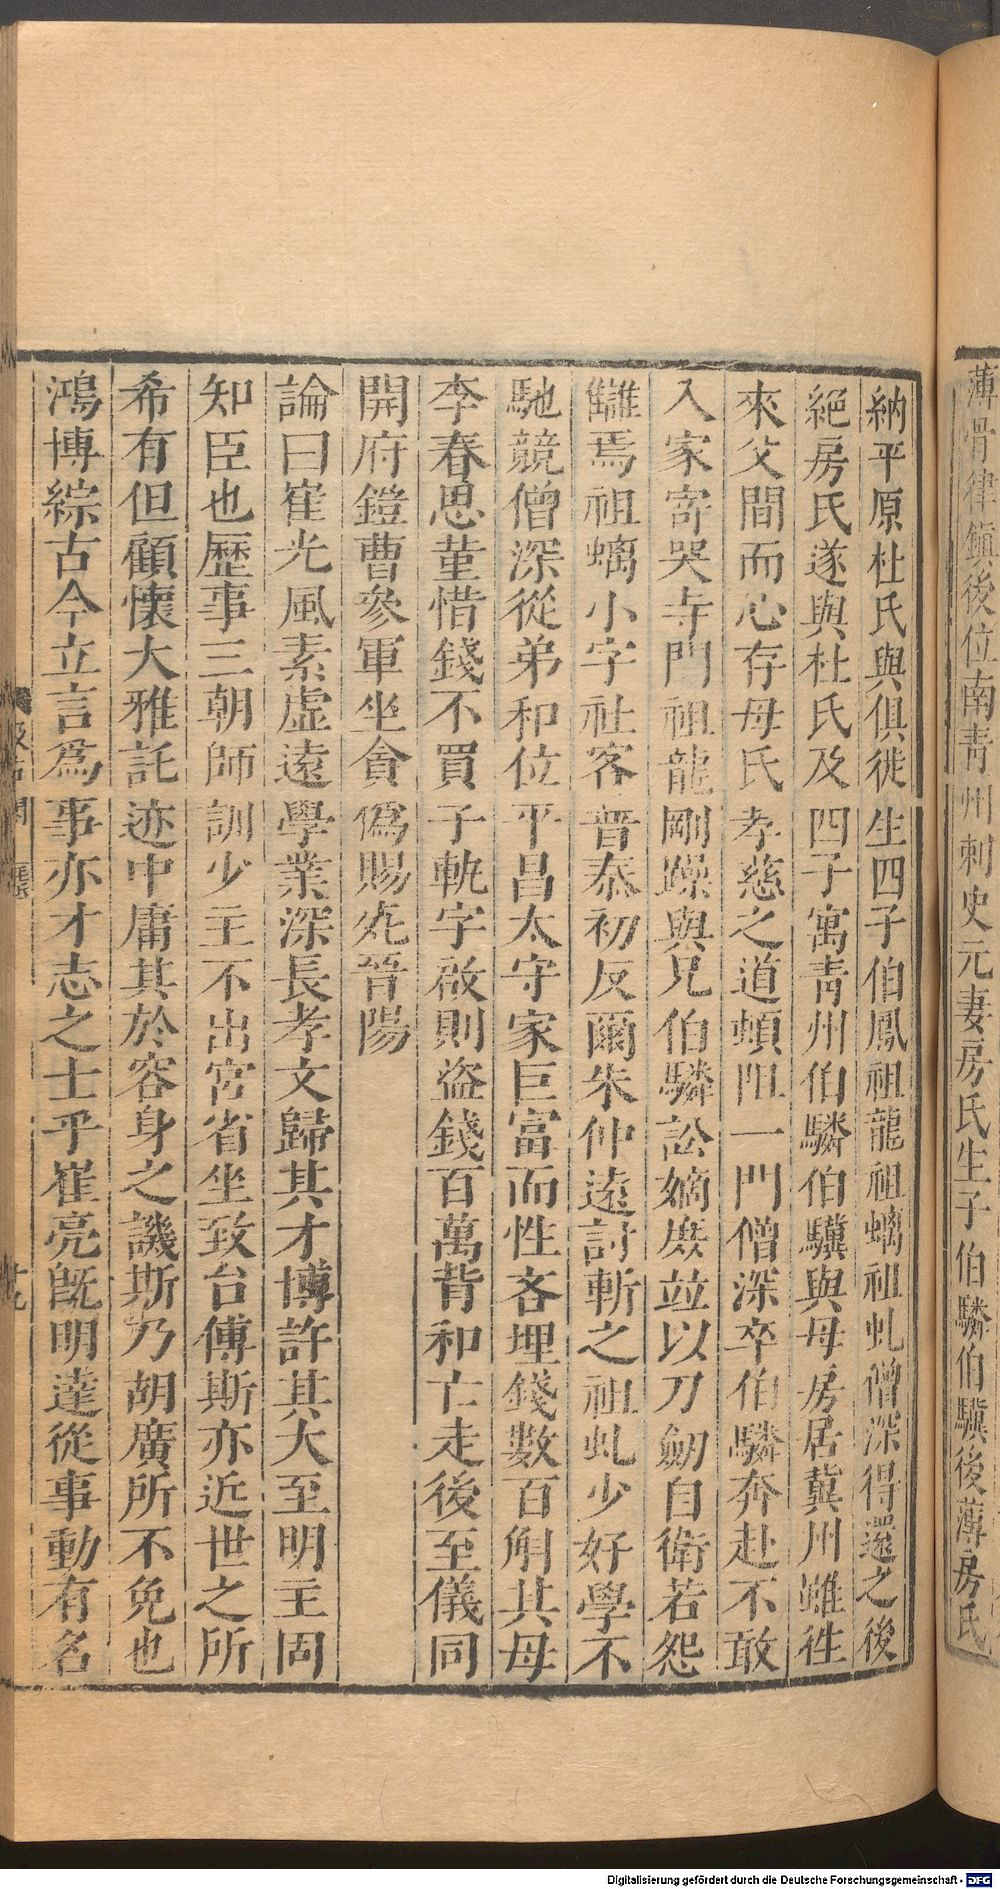 薄骨律鎮後位南青州刺史元妻房氏生子伯驎伯驥後薄房氏
納平原杜氏與俱徙生四子伯鳳祖龍祖螭祖虬僧深得還之後
絕房氏遂與杜氏及四子寓青州伯驎伯驥與母房居冀州雖往
來父間而心存母氏孝慈之道頓阻一門僧深卒伯驎奔赴不敢
入家寄哭寺門祖龍剛躁與兄伯驎訟嫡庶竝以刀劒自衛若怨
讎焉祖螭小字社客普泰初反爾朱仲遠討斬之祖虬少好學不
馳競僧深從弟和位平昌太守家巨富而性吝埋錢數百斛其母
李春思堇惜錢不買子軌字啟則盜錢百萬背和亡走後至儀同
開府鎧曹參軍坐貪僞賜死晉陽
論曰崔光風素虛遠學業深長孝文歸其才博許其大至明主固
知臣也歷事三朝師訓少主不出宮省坐致台傅斯亦近世之所
希有但顧懷大雅託迹中庸其於容身之譏斯乃胡廣所不免也
鴻博綜古今立言爲事亦才志之士乎崔亮旣明達從事動有名
Digitalisierung gefördert durch die Deutsche Forschungsgemeinschaft - DFG